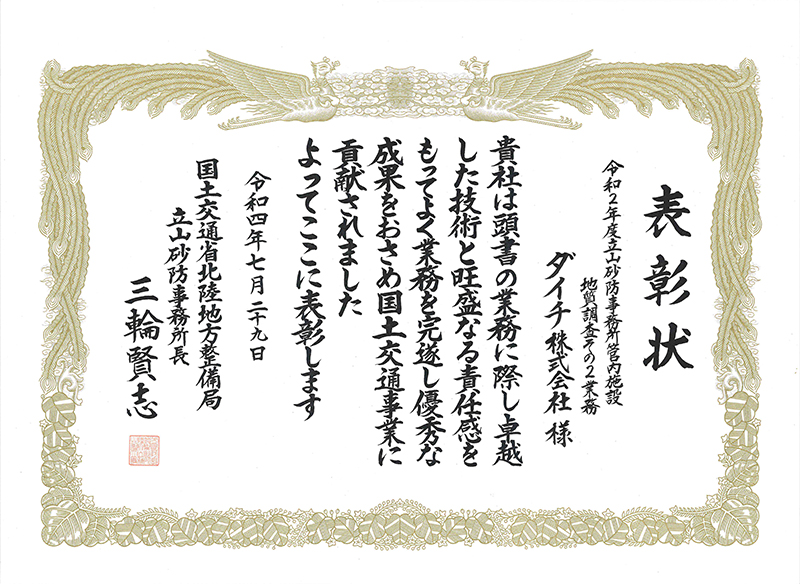 表彰状
令和２年度立山砂防事務所管内施設
地質調査その２業務
ダイチ株式会社 様
貴社は頭書の業務に際し卓越
した技術と旺盛なる責任感を
もってよく業務を完遂し優秀な
成果をおさめ国土交通事業に
貢献されました
よってここに表彰します
令和四年七月二十九日
国土交通省北陸地方整備局
立山砂防事務所長
三輪賢志